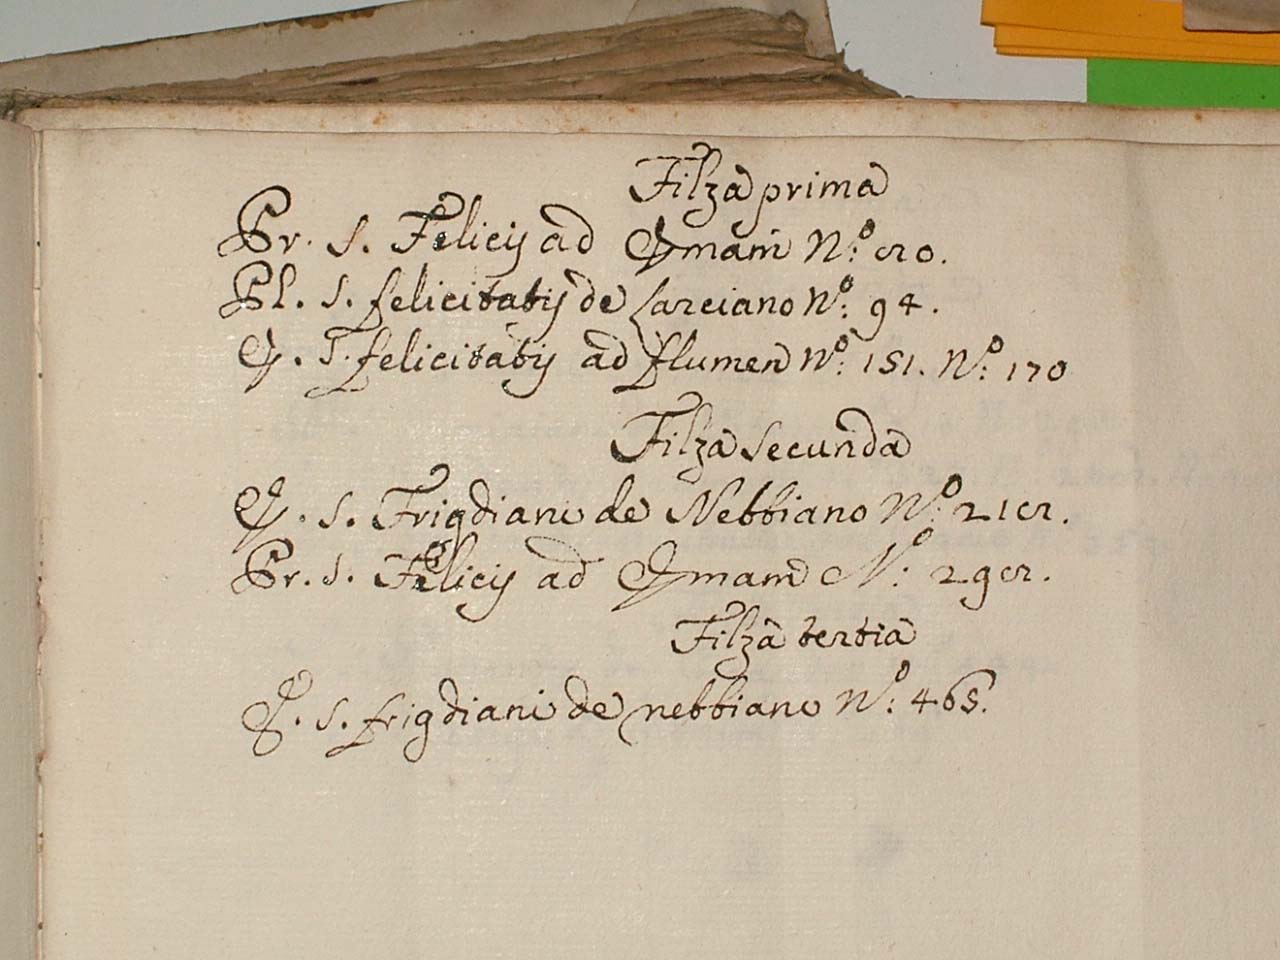 Filza prima
Pr. S. Felicis ad Emam N.º 80.
Pl. S. felicitatis de Larciano Nº: 94.
E. S. felicitatis ad flumen Nº: 151. Nº: 170
Filza Secunda
E. S. Frigdiani de Nebbiano Nº: 218.
Pr. S. Felicis ad Emam Nº: 298.
Filza tertia
E. S. frigdiani de nebbiano Nº: 465.